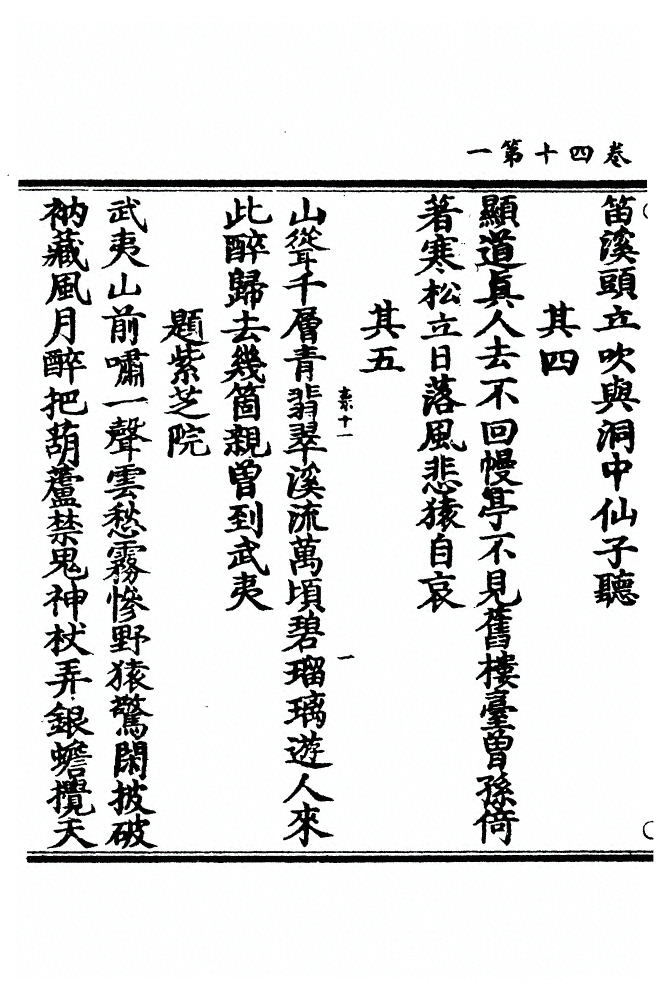 卷四十第一
笛溪頭立吹與洞中仙子聽
其四
顯道真人去不回幔亭不見舊樓臺曾孫倚
著寒松立日落風悲猿自哀
其五
十一　一
山聳千層青翡翠溪流萬頃碧瑠璃遊人來
此醉歸去幾箇親曾到武夷
題紫芝院
武夷山前嘯一聲雲愁霧慘野猿驚閑披破
衲藏風月醉把葫蘆禁鬼神杖弄銀蟾攪天